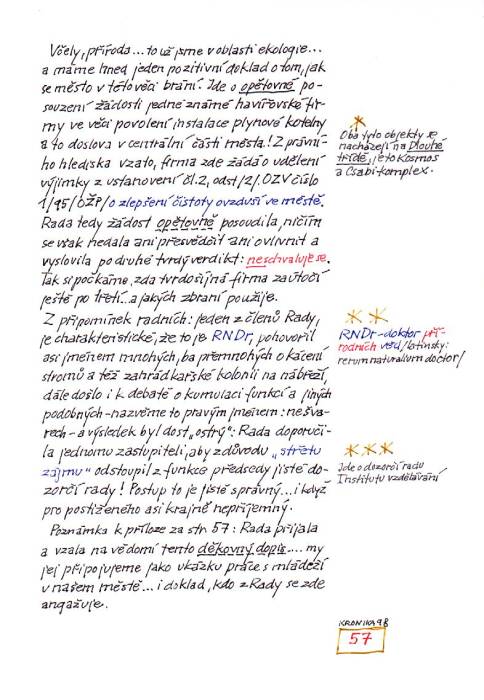 Včely, příroda... to už jsme v oblasti ekologie...
a máme hned jeden pozitivní doklad o tom, jak
se město v této věci brání. Jde o opětovné po-
souzení žádosti jedné známé havířovské fir-
my ve věci povolení instalace plynové kotelny
a to doslova v centrální části města! Z právní-
ho hlediska vzato, firma zde žádá o udělení
výjimky z ustanovení čl. 2, odst/2/, OZV číslo
1/95/OŽP/o zlepšení čistoty ovzduší ve městě.
Rada tedy žádost opětovně posoudila, ničím
se však nedala ani přesvědčit ani ovlivnit a
vyslovila po druhé tvrdý verdikt: neschvaluje se.
Tak si počkáme, zda tvrdošíjná firma zaútočí
ještě po třetí...a jakých zbraní použije.
Z připomínek radních: jeden z členů Rady,
je charakteristické, že to je RNDr, pohovořil
asi jménem mnohých, ba přemnohých o kácení
stromů a též zahrádkářské kolonii na nábřeží,
dále došlo i k debatě o kumulaci funkcí a jiných
podobných - nazvěme to pravým jménem: nešva-
rech - a výsledek byl dost „ostrý": Rada doporuči-
la jednomu zastupiteli, aby z důvodu „střetu
zájmu" odstoupil z funkce předsedy jisté do-
zorčí rady! Postup to je jistě správný...i když
pro postiženého asi krajně nepříjemný.
Poznámka k příloze za str. 57: Rada přijala
a vzala na vědomí tento děkovný dopis.... my
jej připojujeme jako ukázku práce s mládeží
v našem městě... i doklad, kdo z Rady se zde
angažuje.
*
Oba tyto objekty se
nacházejí na Dlouhé
třídě, je to Kosmos
a Csabi komplex.
* *
RNDr - doktor pří-
rodních věd/latinsky:
rerum naturalium doctor/
* * *
Jde o dozorčí radu
Institutu vzdělávání
KRONIKA 98
57